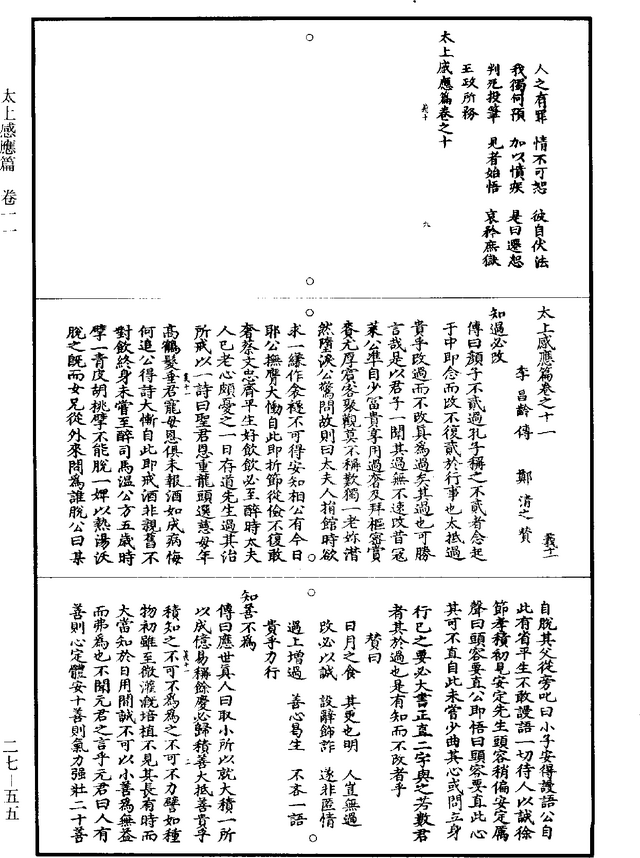 太上感應篇　卷一一
二七—五五
人之有罪　情不可恕　彼自伏法
我獨何預　加以憤疾　是曰遷怒
判死投筆　見者始悟　哀矜庶獄
王政所務
太上感應篇卷之十
義十　九
太上感應篇卷之十一　義十一
李昌齡傳　鄭清之贊
知過必改
傳曰顏子不貳過孔子稱之不貳者念起
于中即念而改不復貳於行事也太抵過
貴乎改過而不改真為過矣其過也可勝
言哉是以君子一聞其過無不速改昔冠
萊公準自少富貴享用過奢及拜樞密賞
賚尤厚賓客聚觀莫不稱歎獨一老妳潸
然墮淚公驚問故則曰太夫人捐館時欲
求一縑作衾襚不可得安知相公有今日
耶公撫膺大慟自此即折節從儉不復敢
奢蔡文忠齊平生好飲飲必至醉時太夫
人已老心頗憂之一日存道先生過其治
所戒以一詩曰聖君恩重龍頭選慈母年
義十一
高鶴髮垂君寵母恩俱未報酒如成病悔
何追公得詩大慚自此即戒酒非親舊不
對飲終身未嘗至醉司馬溫公方五歲時
擘一青皮胡桃擘不能脫一婢以熱湯沃
脫之既而女兄從外來問為誰脫公曰某
自脫其父從旁叱曰小子安得謾語公自
此有省平生不敢謾語一切待人以誠徐
節孝積初見安定先生頭容稍偏安定厲
聲曰頭容要直公即悟曰頭容要直此心
其可不直自此未嘗少曲其心或問立身
行已之要必大書正直二字與之若數君
者其於過也是有知而不改者乎
贊曰
日月之食　其更也明　人豈無過
改必以誠　設辭飾詐　遂非匿情
過上增過　善心易生　不吝一語
貴乎力行
知善不為
傳曰應世真人曰取小所以就大積一所
以成億易稱餘慶必歸積善大抵善貴乎
義十一　二
積知之不可不為為之不可不力譬如種
物初雖至微灌溉培植不見其長有時而
大當知於日用間誠不可以小善為無益
而弗為也不聞元君之言乎元君曰人有
善則心定體安十善則氣力強壯二十善